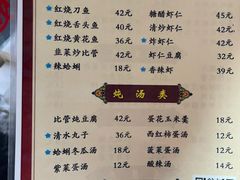 红烧刀鱼 42元 糖醋虾仁 45元
★ 红烧舌头鱼 40元 清炒虾仁
★ 红烧黄花鱼 36元 ★ 炸虾仁 42元
韭菜炒比管 42元 虾仁豆腐 32元
★ 辣蛤蜊 18元 ★ 香辣虾 39元
炖汤类
比管炖豆腐 42元 蛋花玉米羹 18元
★ 清水丸子 36元 西红柿蛋汤 12元
★ 蛤蜊冬瓜汤 18元 菠菜蛋汤 12元
紫菜蛋汤 12元 酸辣汤 14元